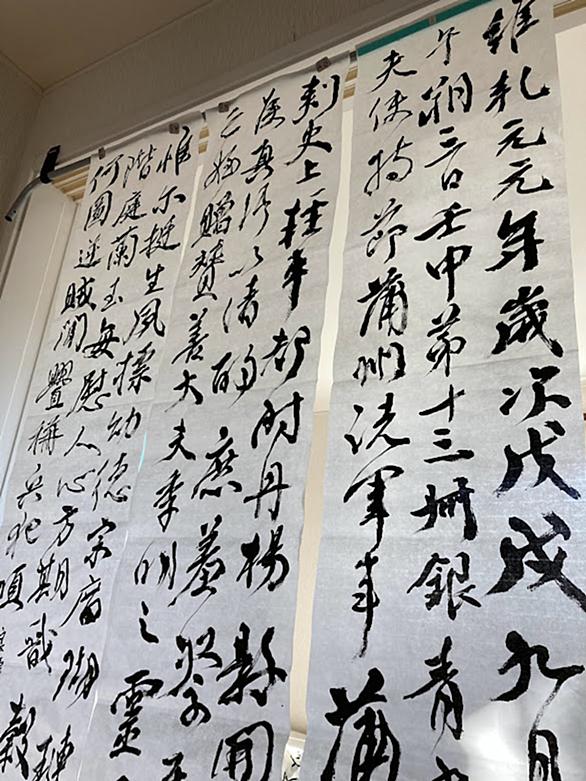 維乾元元年歲次戊戌九月
午朔三日壬申第十三叔銀青
夫使持節蒲州諸軍事蒲
刺史上輕車都尉丹楊縣開
侯真卿以清酌庶羞祭于
亡姪贈贊善大夫季明之靈
惟爾挺生夙標幼德宗廟瑚璉
階庭蘭玉每慰人心方期戩穀
何圖逆賊閒釁稱兵犯順